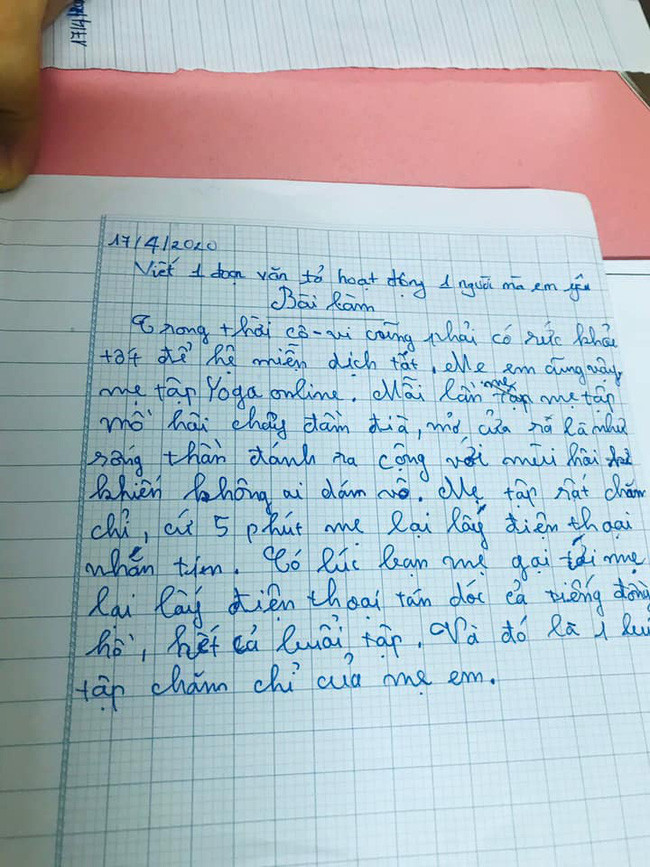 17/4/2020
17/4/2020
Viết 1 đoạn văn tả hoạt động 1 người mà em yêu
Bài làm
Trong thời cô-vi cũng phải có sức khỏe
tốt để hệ miễn dịch tốt. Mẹ em cũng vậy,
mẹ tập Yoga online. Mỗi lần mẹ tập
mồ hôi chảy đầm đìa, mở cửa ra là như
sóng thần đánh ra cộng với mùi hôi
khiến không ai dám vô. Mẹ tập rất chăm
chỉ, cứ 5 phút mẹ lại lấy điện thoại
nhắn tin. Có lúc bạn mẹ gọi tới mẹ
lại lấy điện thoại tán dóc cả tiếng đồng
hồ, hết cả buổi tập. Và đó là 1 buổi
tập chăm chỉ của mẹ em.